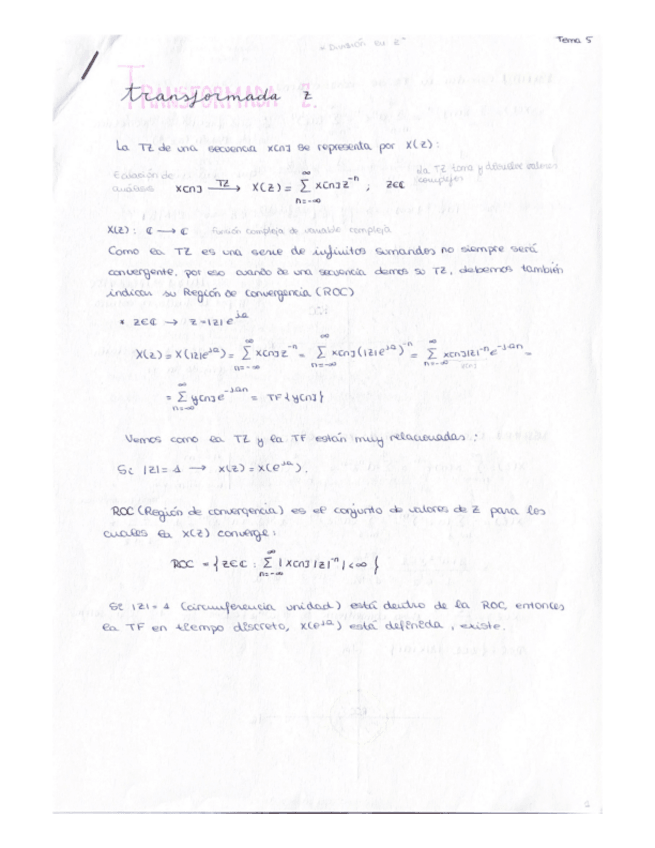 "División en Z"
Tema 5
TRANSFORMADA Z.
transformada z
La TZ de una secuencia x[n] se representa por X(z):
Ecuación de análisis x[n] —TZ→ X(z) = ∑_{n=-∞}^{∞} x[n] z^{-n} ; z∈ℂ La TZ toma y devuelve valores complejos
X(z): ℂ → ℂ Función compleja de variable compleja
Como la TZ es una serie de infinitos sumandos no siempre será
convergente, por eso cuando de una secuencia demos su TZ, debemos también
indicar su Región de Convergencia (ROC)
* z∈ℂ → z=|z|e^{jΩ}
X(z) = X(|z|e^{jΩ}) = ∑_{n=-∞}^{∞} x[n] z^{-n} = ∑_{n=-∞}^{∞} x[n] (|z|e^{jΩ})^{-n} = ∑_{n=-∞}^{∞} x[n]|z|^{-n} e^{-jΩn} =
y[n]
= ∑_{n=-∞}^{∞} y[n] e^{-jΩn} = TF{y[n]}
Vemos como la TZ y la TF están muy relacionadas:
Si |z|=1 → X(z)=X(e^{jΩ}).
ROC (Región de convergencia) es el conjunto de valores de z para los
cuales la X(z) converge:
ROC = {z∈ℂ : ∑_{n=-∞}^{∞} |x[n]|z|^{-n}| < ∞}
Si |z|=1 (circunferencia unidad) está dentro de la ROC, entonces
la TF en tiempo discreto, X(e^{jΩ}) está definida, existe.